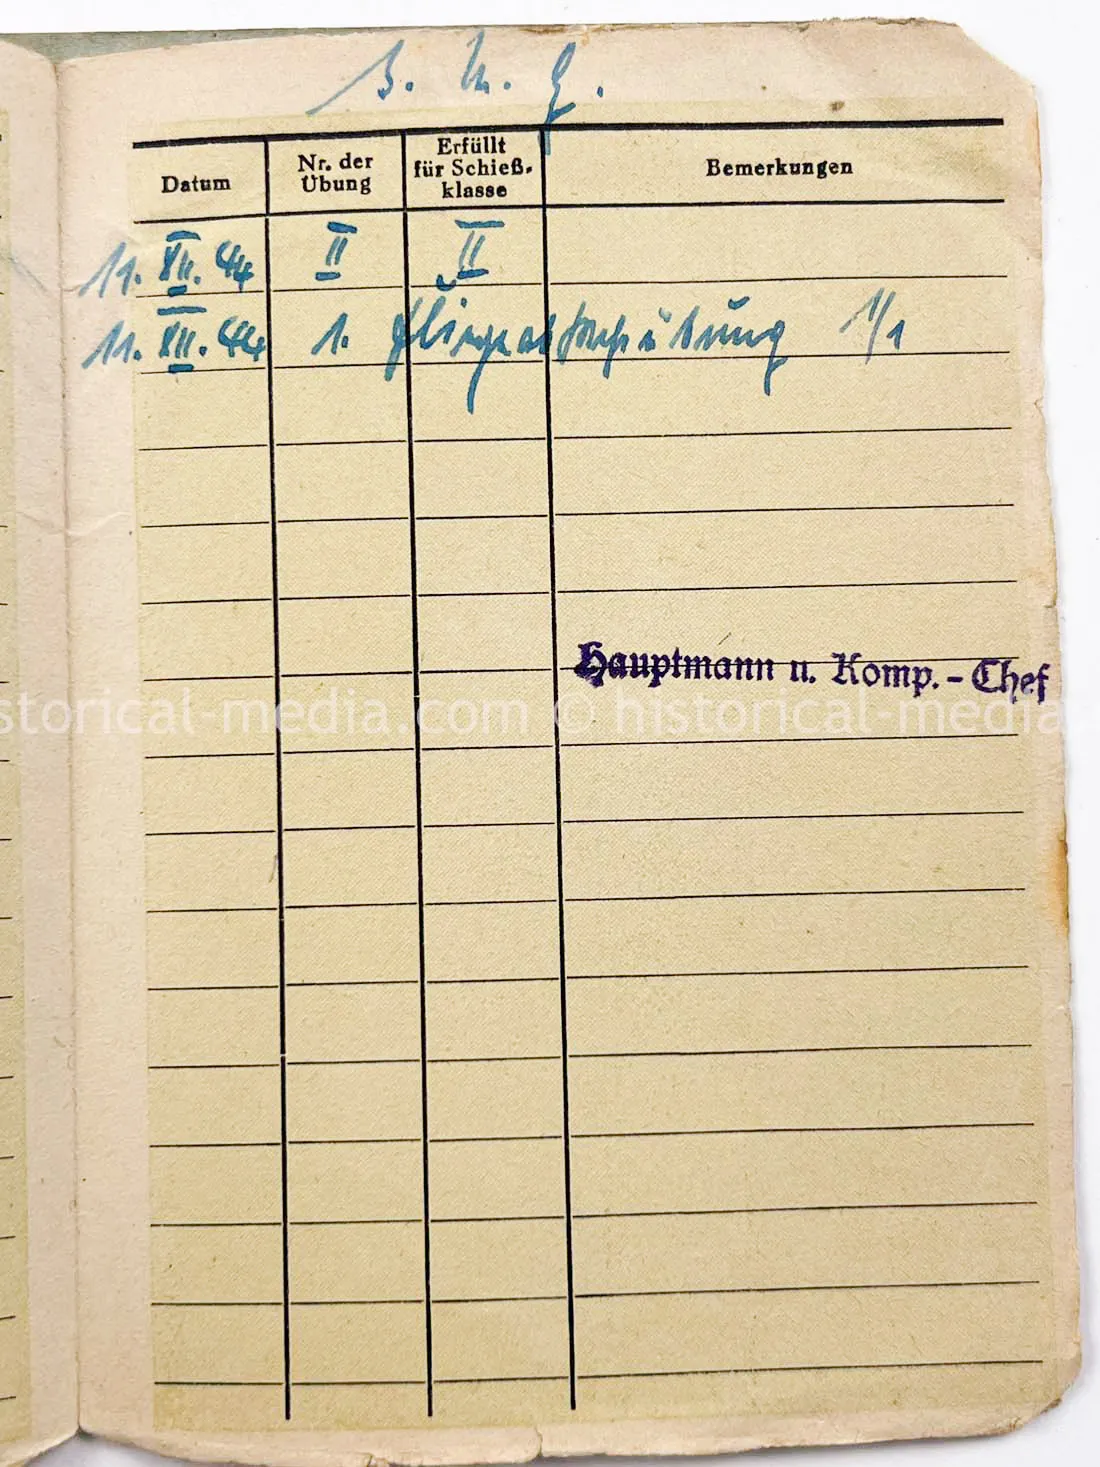 s. M. G.
Datum
Nr. der
Übung
Erfüllt
für Schieß-
klasse
Bemerkungen
11. XII. 44 II II
11. XII. 44 1. Fliegerabwehrübung 1/1
Hauptmann u. Komp.-Chef
storical-media.com © historical-media